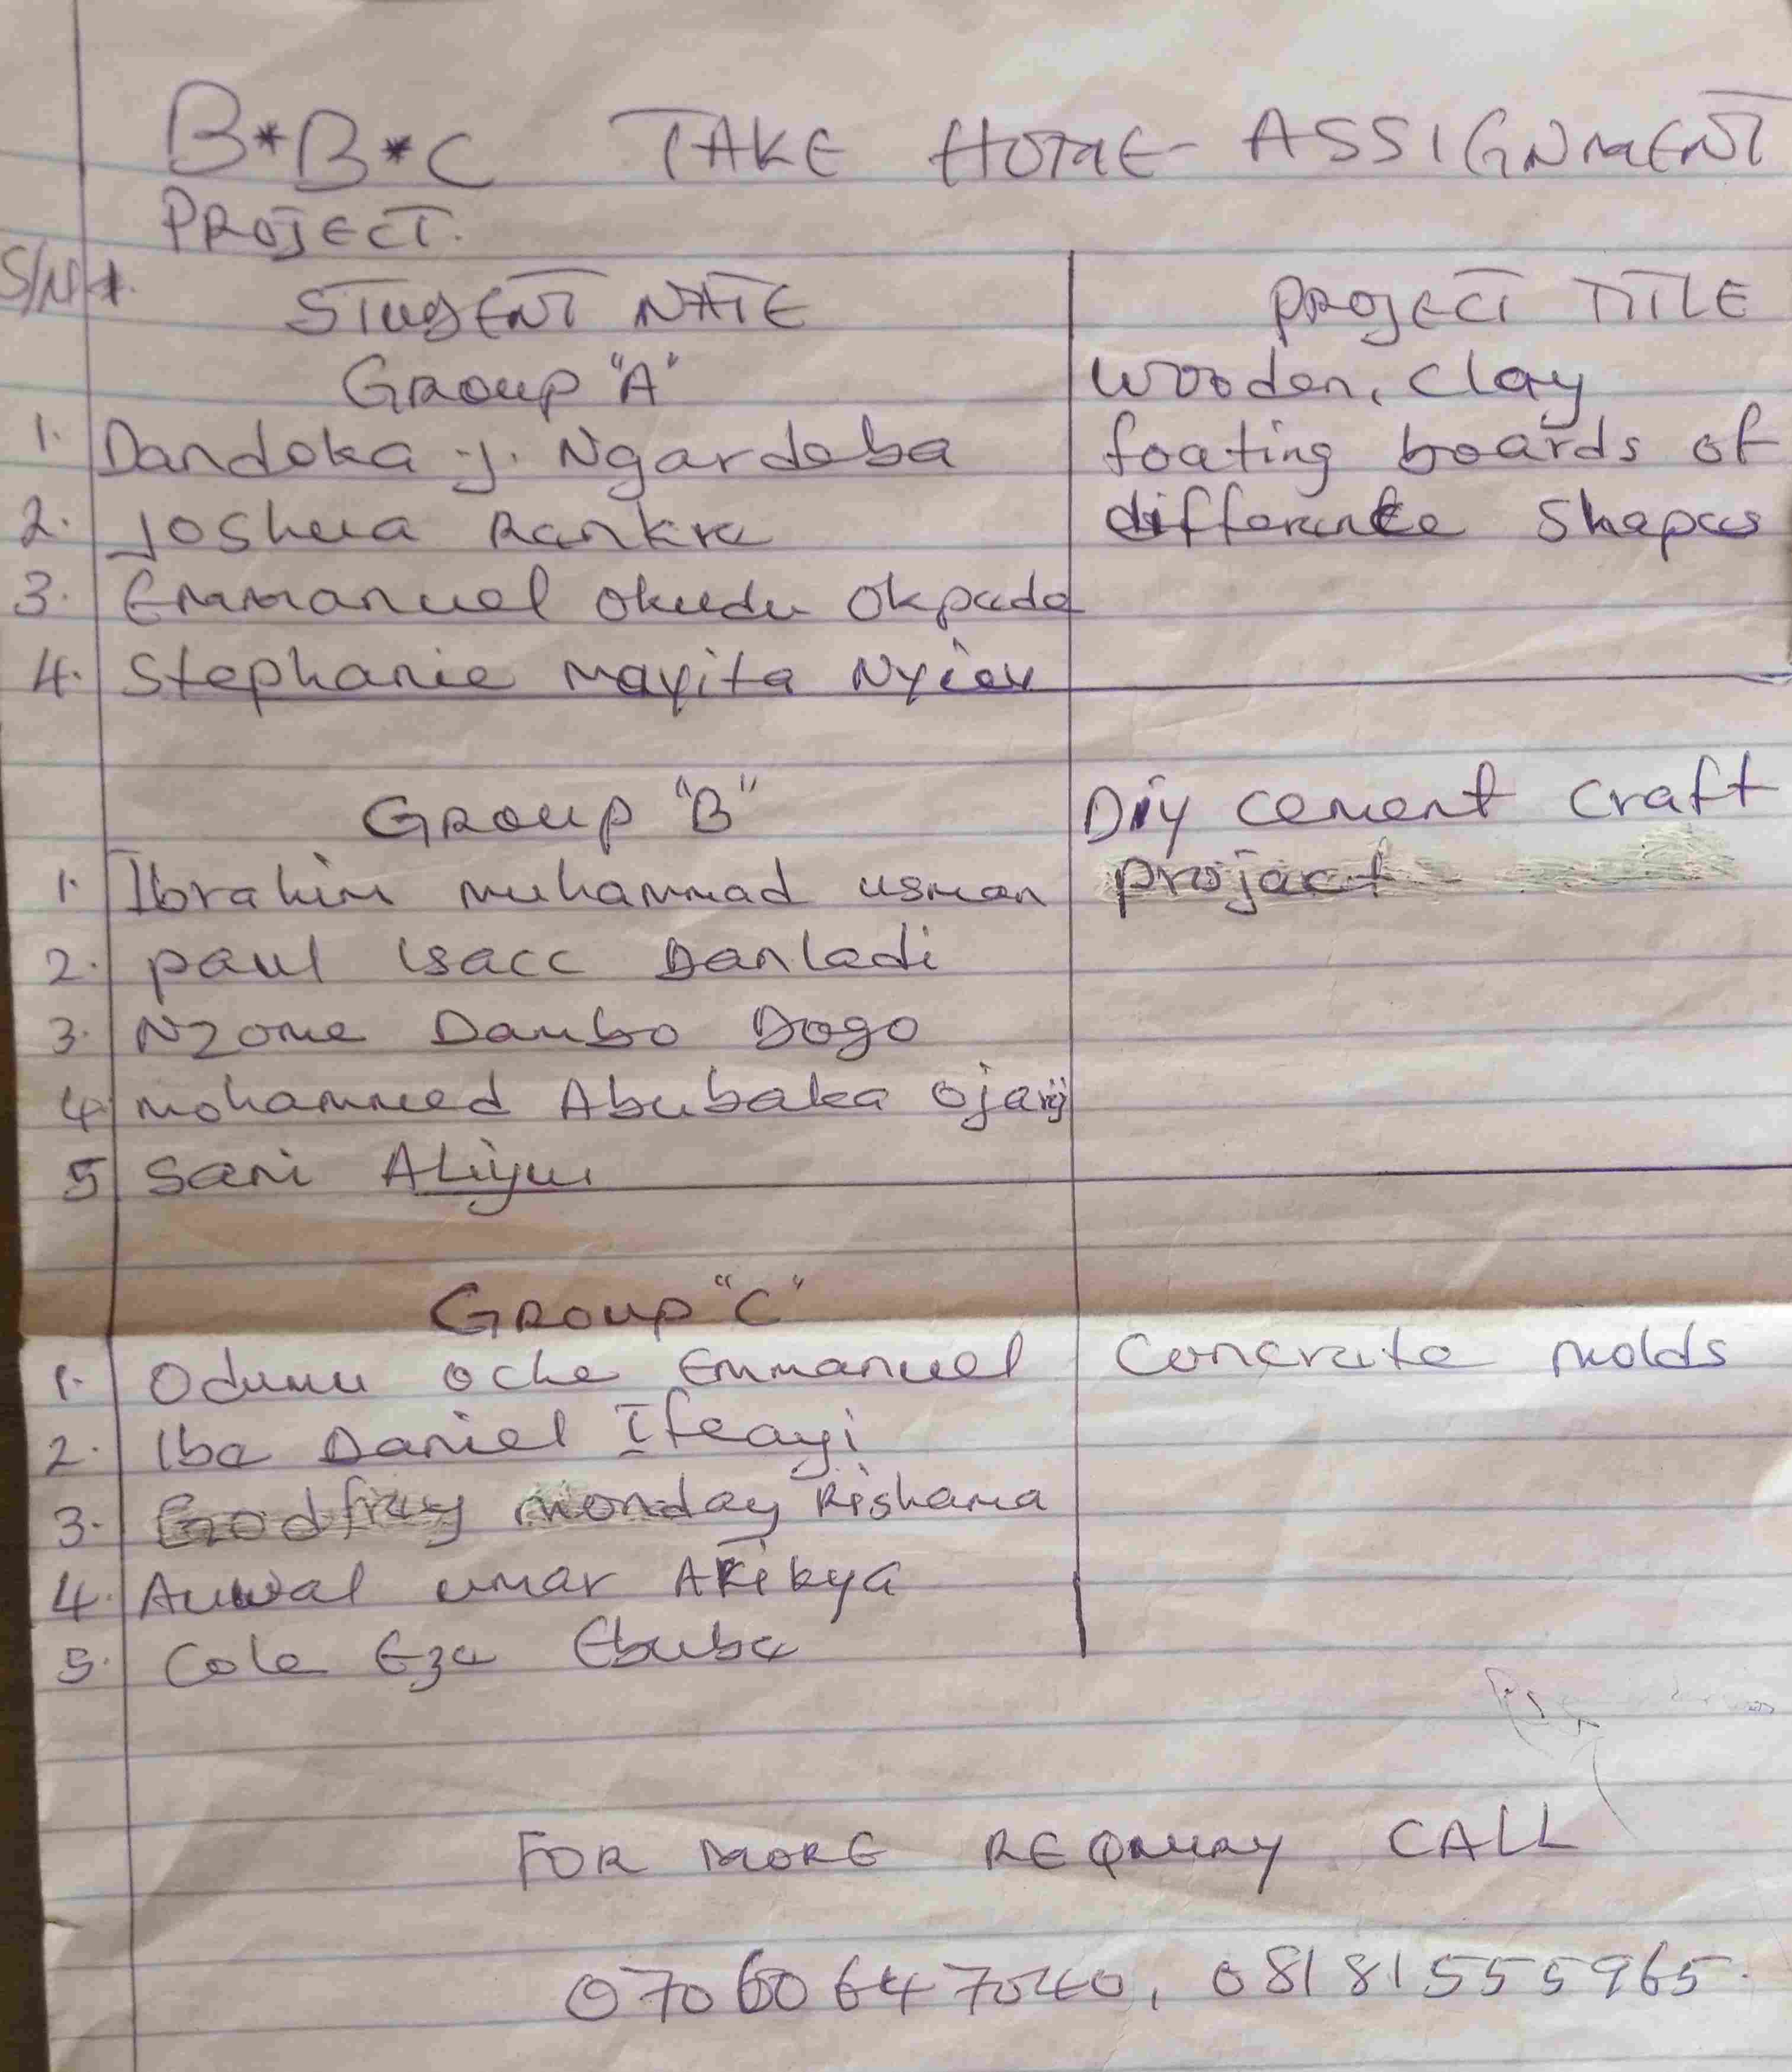 B*B*C TAKE HOME ASSIGNMENT
PROJECT.
S/N STUDENT NAME PROJECT TITLE
Group "A" Wooden, Clay
1. Dandoka J. Ngardoba foating boards of
2. Joshua differente Shapes
3. Emmanuel Okudu Okpada
4. Stephanie Mayita
Group "B" Diy cement craft
1. Ibrahim Muhammad Usman project
2. Paul Isacc Danladi
3. Nzome Dambo Dogo
4. Mohammed Abubaka
5 Sani Aliyu
Group "C"
1. Odumu Oche Emmanuel Concrete molds
2. Iba Daniel Ifeayi
3. Godfrey Monday Rishama
4. Auwal Umar
5. Cole Eze Ebube
FOR MORE CALL
07060647040, 08181555965.